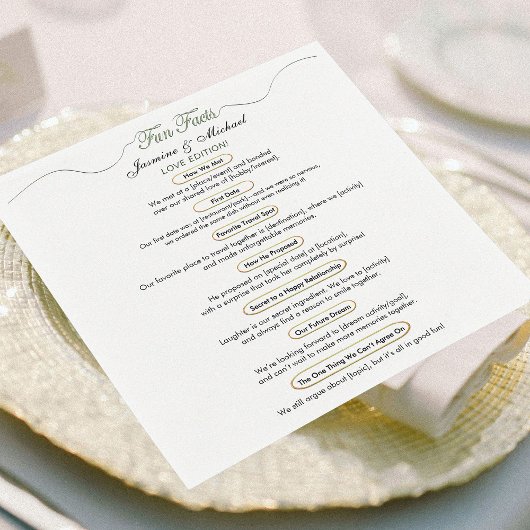 Fun Facts
Jasmine & Michael
LOVE EDITION!
How We Met
We met at a [place/event] and bonded
over our shared love of [hobby/interest].
First Date
Our first date was at [restaurant/park]—and we were so nervous,
we ordered the same dish without even realizing it
Favorite Travel Spot
Our favorite place to travel together is [destination], where we [activity]
and made unforgettable memories.
How He Proposed
He proposed on [special date] at [location],
with a surprise that took her completely by surprise!
Secret to a Happy Relationship
Laughter is our secret ingredient. We love to [activity]
and always find a reason to smile together.
Our Future Dream
We're looking forward to [dream activity/goal],
and can't wait to make more memories together.
The One Thing We Can't Agree On
We still argue about [topic], but it's all in good fun!